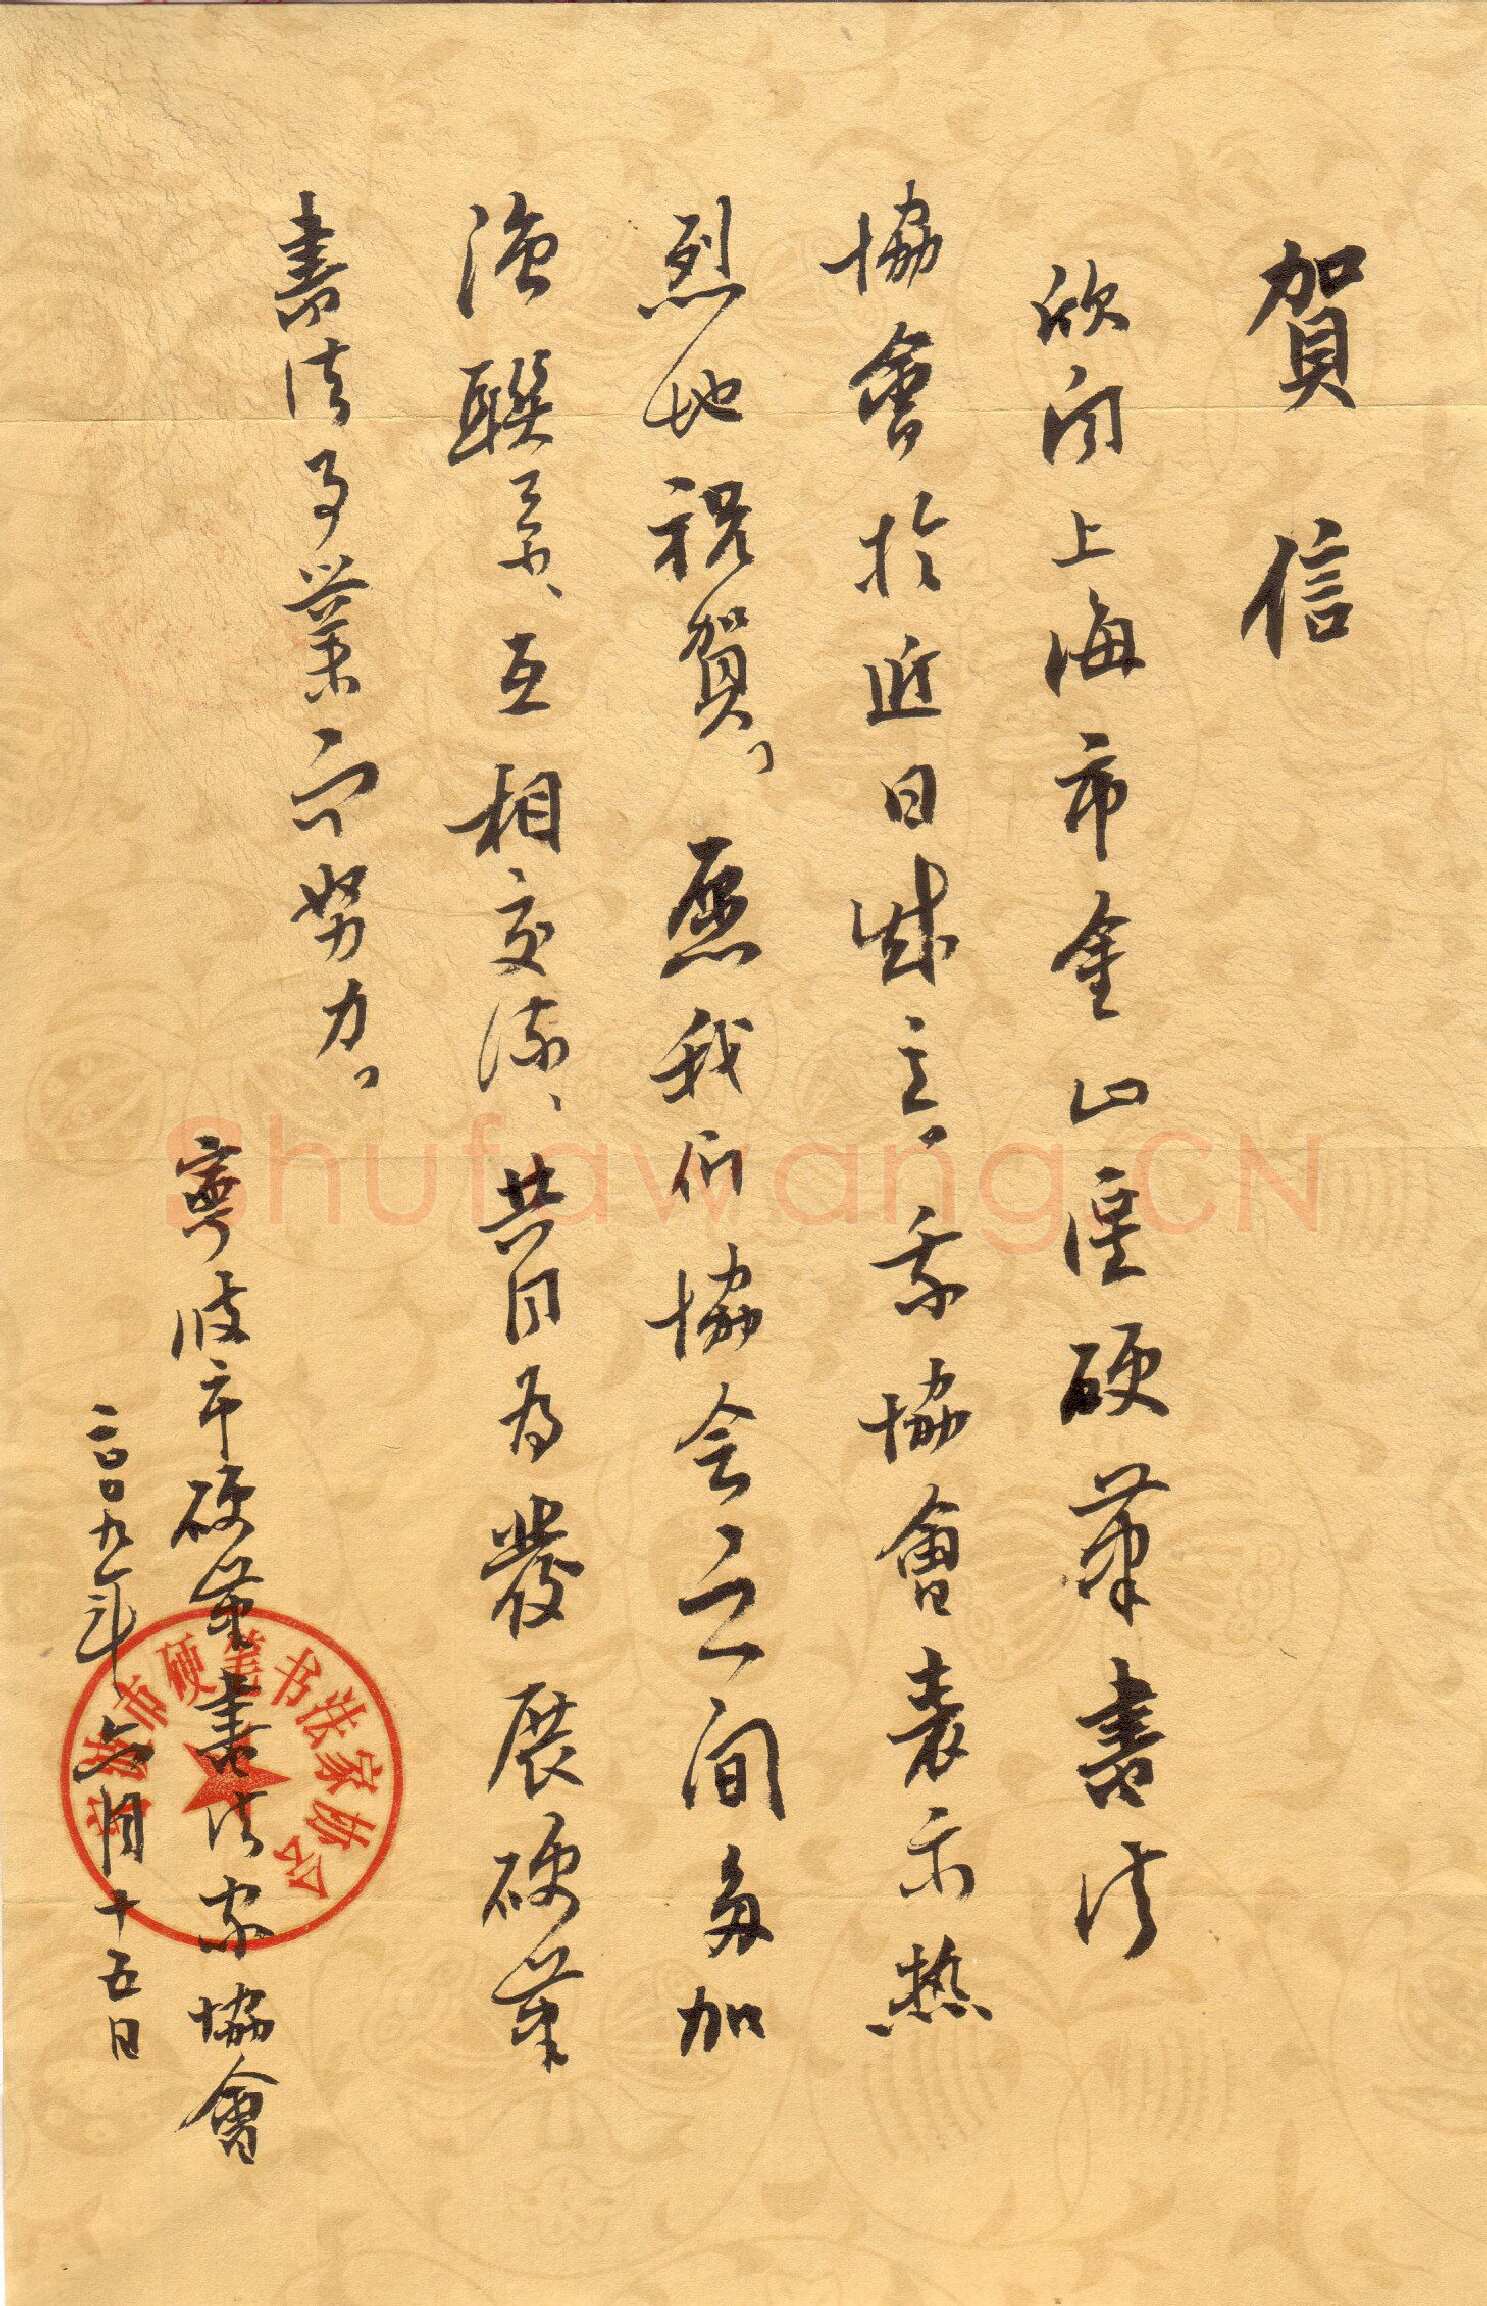 賀信
欣闻上海市金山區硬筆書法
協會於近日成立，我協會表示熱
烈地祝賀。愿我们協会之间多加
强聯系、互相交流、共同为發展硬筆
書法事業而努力。
寧波市硬筆書法家協會
二〇〇九年六月十五日
宁波市硬笔书法家协会
Shufawang.CN